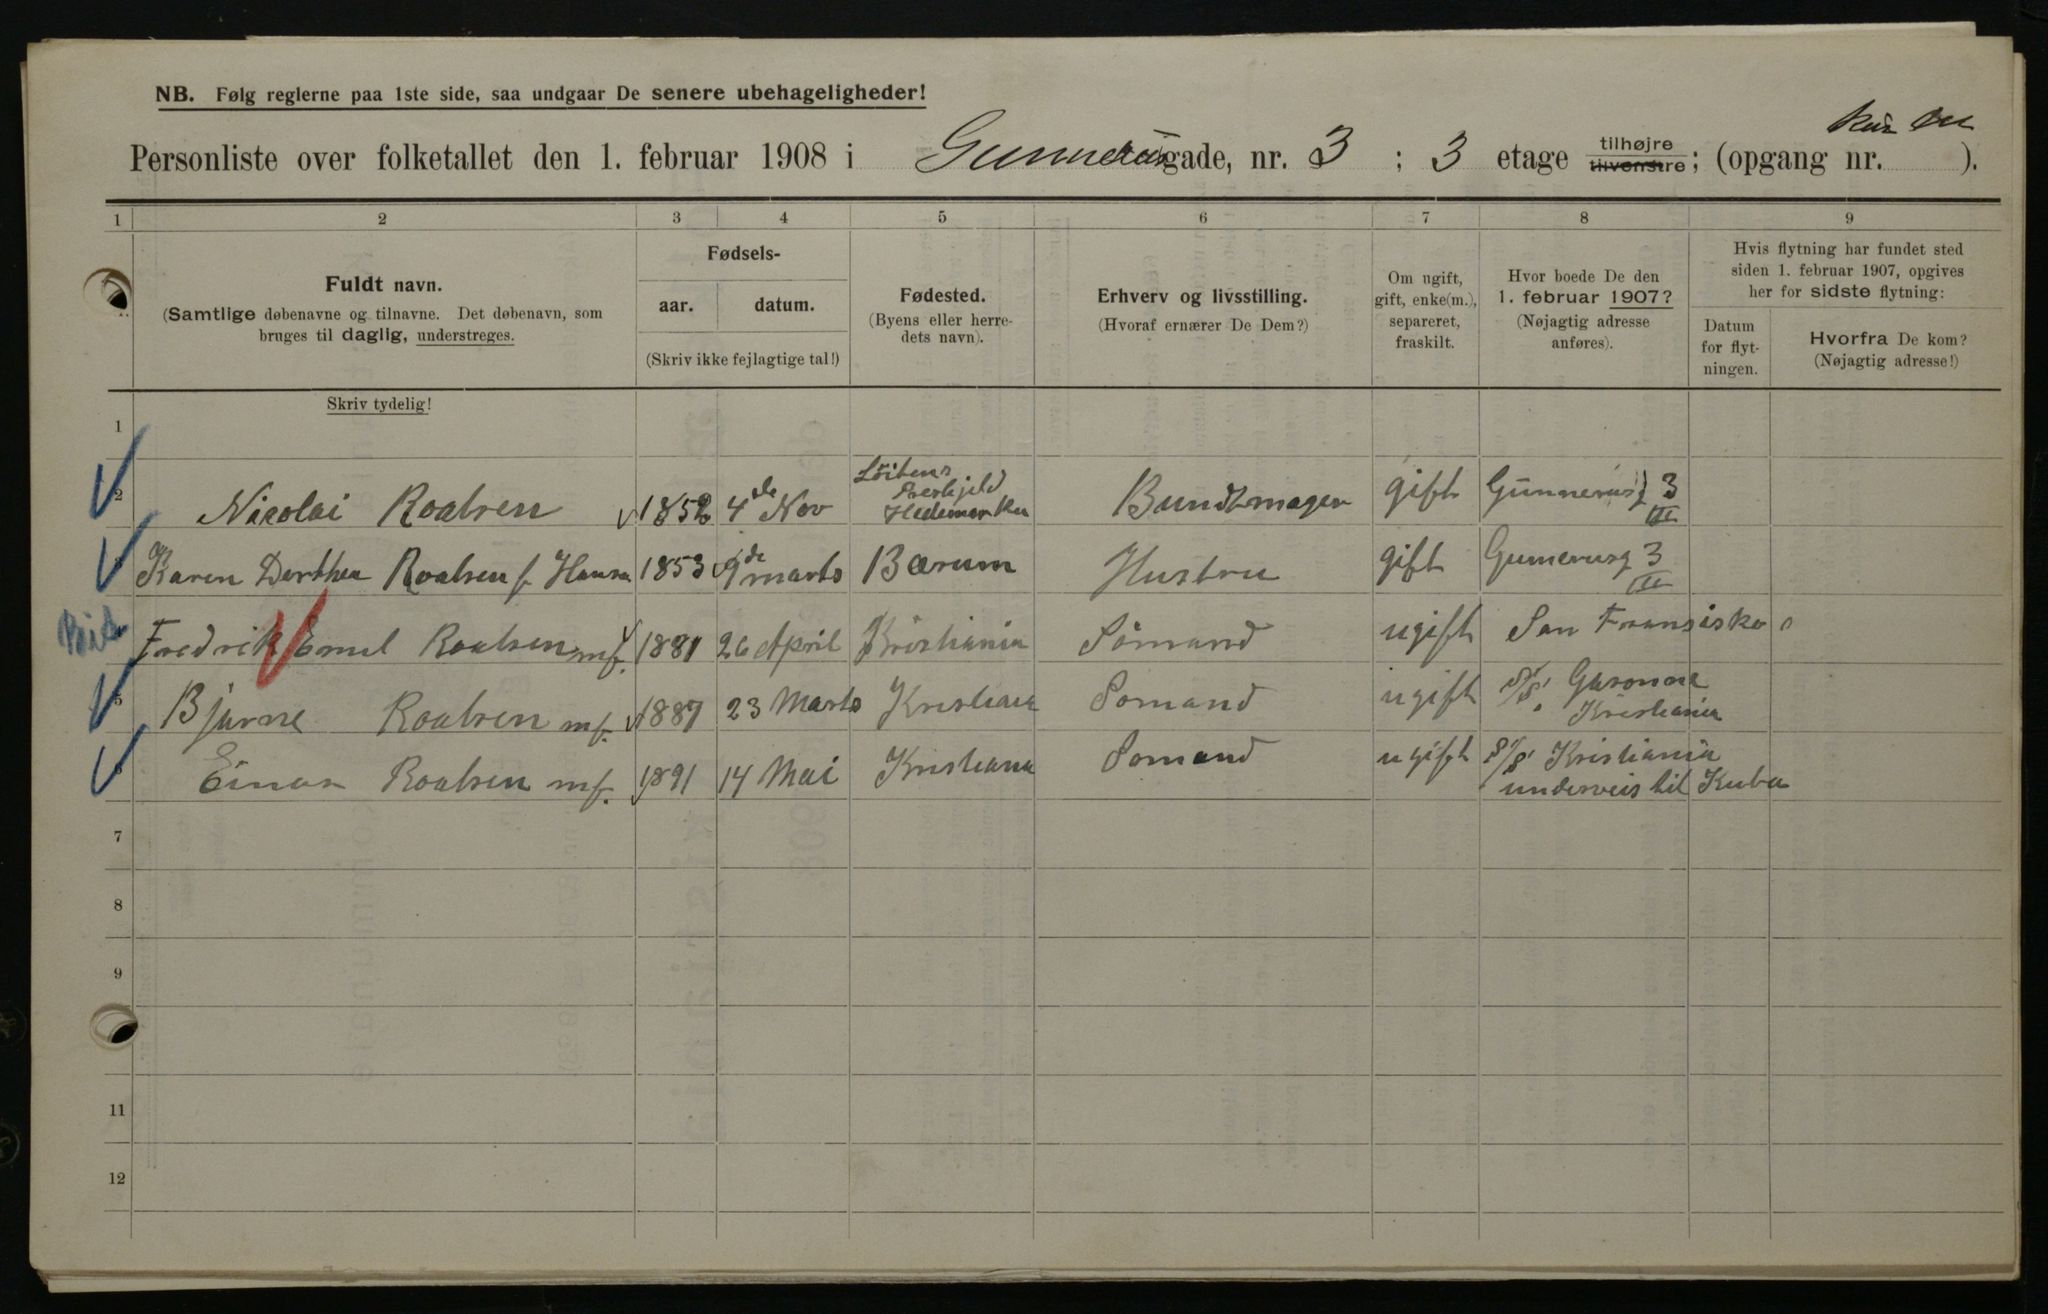 NB. Følg reglerne paa 1ste side, saa undgaar De senere ubehageligheder!
Personliste over folketallet den 1. februar 1908 i Gunnerusgade, nr. 3 ; 3 etage tilhøjre tilvenstre; (opgang nr. kun en ).
1 2 3 4 5 6 7 8 9
Fuldt navn.
(Samtlige døbenavne og tilnavne. Det døbenavn, som
bruges til daglig, understreges.
Fødsels-
aar. datum.
(Skriv ikke fejlagtige tal!)
Fødested.
(Byens eller herre-
dets navn).
Erhverv og livsstilling.
(Hvoraf ernærer De Dem?)
Om ugift,
gift, enke(m.),
separeret,
fraskilt.
Hvor boede De den
1. februar 1907?
(Nøjagtig adresse
anføres).
Hvis flytning har fundet sted
siden 1. februar 1907, opgives
her for sidste flytning:
Datum
for flyt-
ningen.
Hvorfra De kom?
(Nøjagtig adresse!)
Skriv tydelig!
1
2 Nicolai Roalsen 1852 4de Nov Löitens Prestjeld Hedemarken Bundtmager gift Gunnerusg 3 III
Karen Dorthea Roalsen f. Hansen 1853 9de marts Bærum Hustru gift Gunnerusg 3 III
Fredrik Emil Roalsen mf. 1881 26 April Kristiania Sömand ugift San Fransisko
5 Bjarne Roalsen mf. 1887 23 Marts Kristiania Somand ugift S/S. Garonne Kristiania
6 Einar Roalsen mf. 1891 14 Mai Kristiania Somand ugift S/S Kristiania
underveis til Kuba
7
8
9
11
12